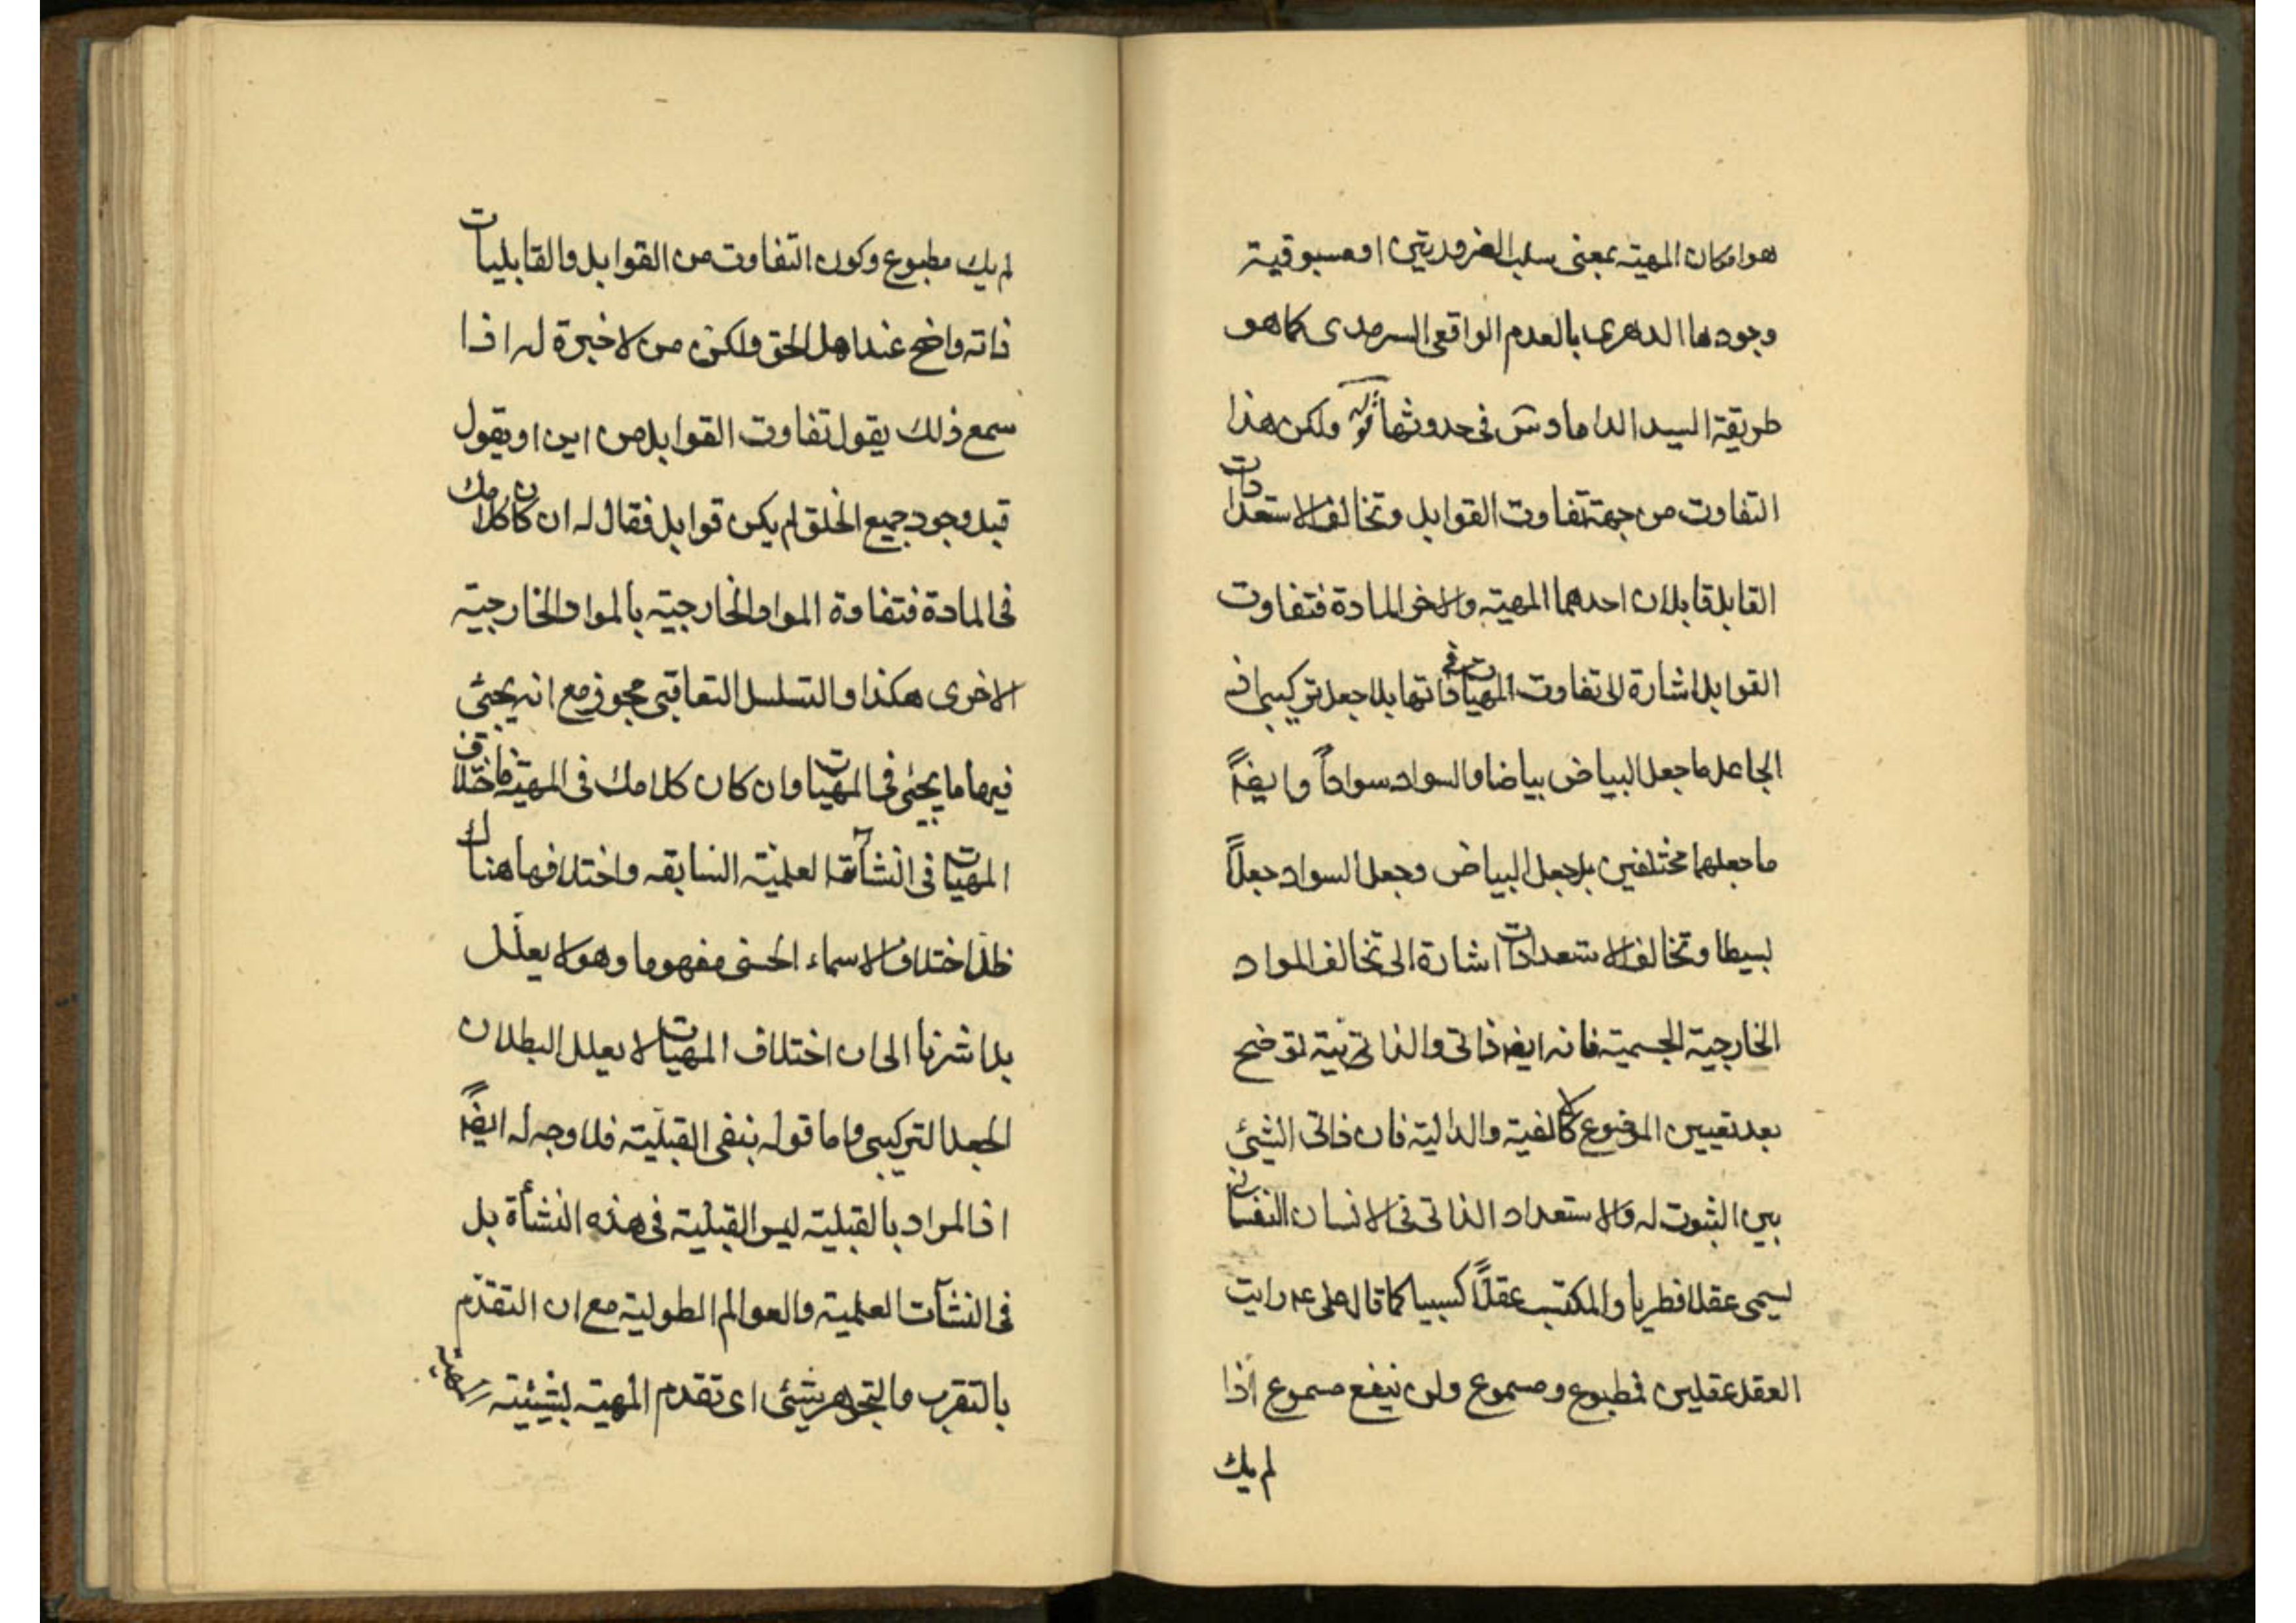 هو امكان المهية بمعنى سلب الضرورتين او مسبوقية
وجودها الدهرى بالعدم الواقعى السرمدى كما هو
طريقة السيد الداماد س فى حدوثها قوله ولكن هذا
التفاوت من جهة تفاوت القوابل وتخالف الاستعدادات
القابل قابلان احدهما المهية والاخر المادة فتفاوت
القوابل اشارة الى تفاوت المهيات فى ذاتها بلا جعل تركيبى اذ
الجاعل ما جعل البياض بياضا والسواد سواداً وايضاً
ما جعلهما مختلفين بل جعل البياض وجعل السواد جعلاً
بسيطا وتخالف الاستعدادات اشارة الى تخالف المواد
الخارجية الجسمية فانه ايضا ذاتى والذاتى
بعد تعيين الموضوع كالفية والدالية فان ذاتى الشيئ
بين الثبوت له والاستعداد الذاتى فى الانسان النفسانى
يسمى عقلا فطريا والمكتسب عقلاً كسبيا كما قال على ع رايت
العقل عقلين فمطبوع ومسموع ولن ينفع مسموع اذا
لم يك
لم يك مطبوع وكون التفاوت من القوابل والقابليات
ذاته واضح عند اهل الحق ولكن من لا خبرة له اذا
سمع ذلك يقول تفاوت القوابل من اين او يقول
قبل وجود جميع الخلق لم يكن قوابل فقال له ان كان كلامك
فى المادة فتفاوة المواد الخارجية بالمواد الخارجية
الاخرى هكذا والتسلسل التعاقبى مجوز مع انه يجيئ
فيها ما يجيئ فى المهيات وان كان كلامك فى المهية فاختلاف
المهيات فى النشآة العلمية السابقه واختلافها هناك
ظل اختلاف الاسماء الحسنى مفهوما وهو لا يعلّل
بل اشرنا الى ان اختلاف المهيات لا يعلل البطلان
الجعل التركيبى واما قوله بنفى القبليّة فلا وجه له ايضاً
اذ المراد بالقبلية ليس القبلية فى هذه النشأة بل
فى النشآت العلمية والعوالم الطولية مع ان التقدّم
بالتقرب والتجوهر شيئى اى تقدم المهية بشيئية